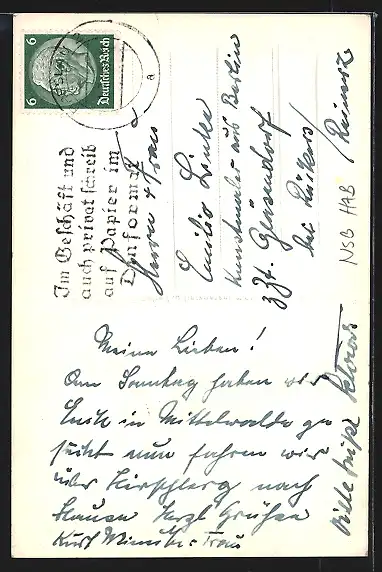 6 Deutsches Reich 6
BRESLAU 2
a
Im Geschäft und
auch privat schreib
auf Papier im
Dinformat
Herrn u Frau
Emilio Linke
Kunstmaler aus Berlin
z Zt. Gersdorf
bei
NSB HAB
Meine Lieben!
Am Sonntag haben wir
Euch in Mittelwalde ge
sucht nun fahren wir
über Hirschberg nach
Hause Herzl Grüße
Kurt Frau
viele Grüße